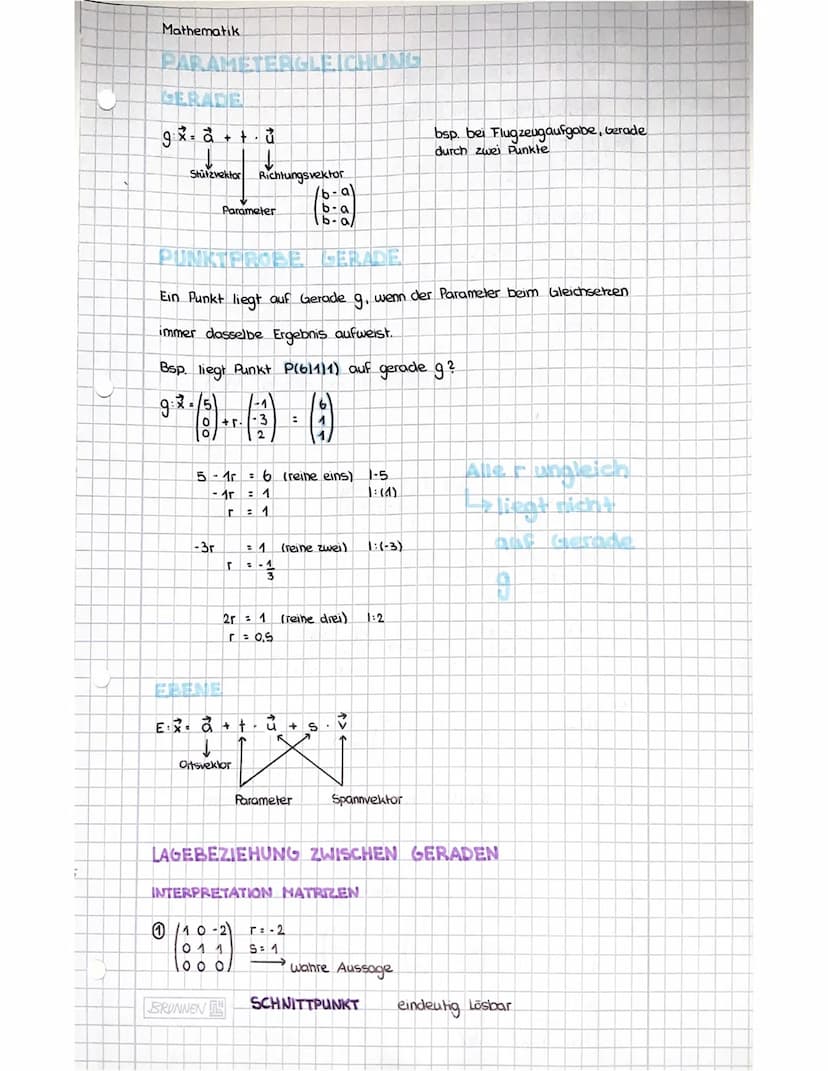 Mathematik
PARAMETERGLEICHUNG
GERADE
g:x⃗ = a⃗ + t · u⃗
bsp. bei Flugzeugaufgabe, Gerade
durch zwei Punkte
Stützvektor Richtungsvektor
Parameter
(b-a)
(b-a)
(b-a)
PUNKTPROBE GERADE
Ein Punkt liegt auf Gerade g, wenn der Parameter beim Gleichsetzen
immer dasselbe Ergebnis aufweist.
Bsp. liegt Punkt P(6|1|1) auf gerade g?
g:x⃗ = (5 0 0) + r · (-1 -3 2) = (6 1 1)
5 - 1r = 6 (reihe eins) |-5
- 1r = 1 |:(1)
r = 1
-3r = 1 (reihe zwei) |:(-3)
r = -1/3
2r = 1 (reihe drei) |:2
r = 0,5
Alle r ungleich
↳ liegt nicht
auf Gerade
g
EBENE
E:x⃗ = a⃗ + t · u⃗ + s · v⃗
Ortsvektor
Parameter Spannvektor
LAGEBEZIEHUNG ZWISCHEN GERADEN
INTERPRETATION MATRIZEN
① (1 0 -2) r = -2
(0 1 1) s = 1
(0 0 0) → wahre Aussage
BRUNNEN SCHNITTPUNKT eindeutig lösbar